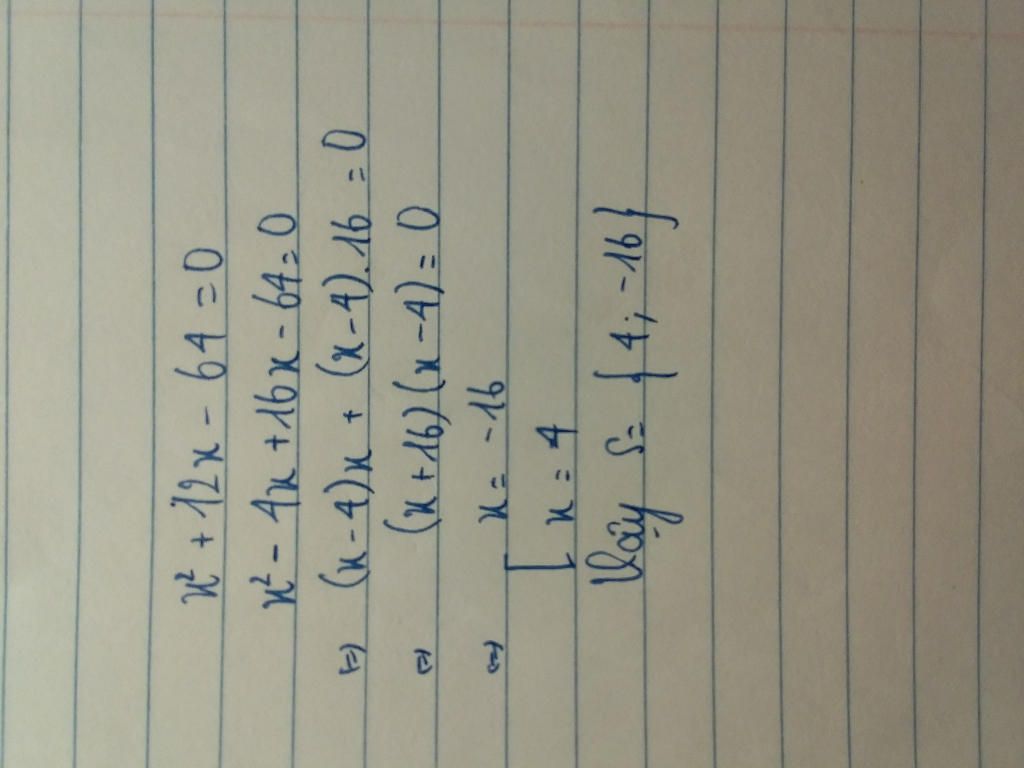 x² + 12x - 64 = 0
x² - 4x + 16x - 64 = 0
⇔ (x - 4)x + (x - 4).16 = 0
⇔ (x + 16)(x - 4) = 0
⇔ x = -16
[ x = 4
Vậy S = { 4 ; -16 }